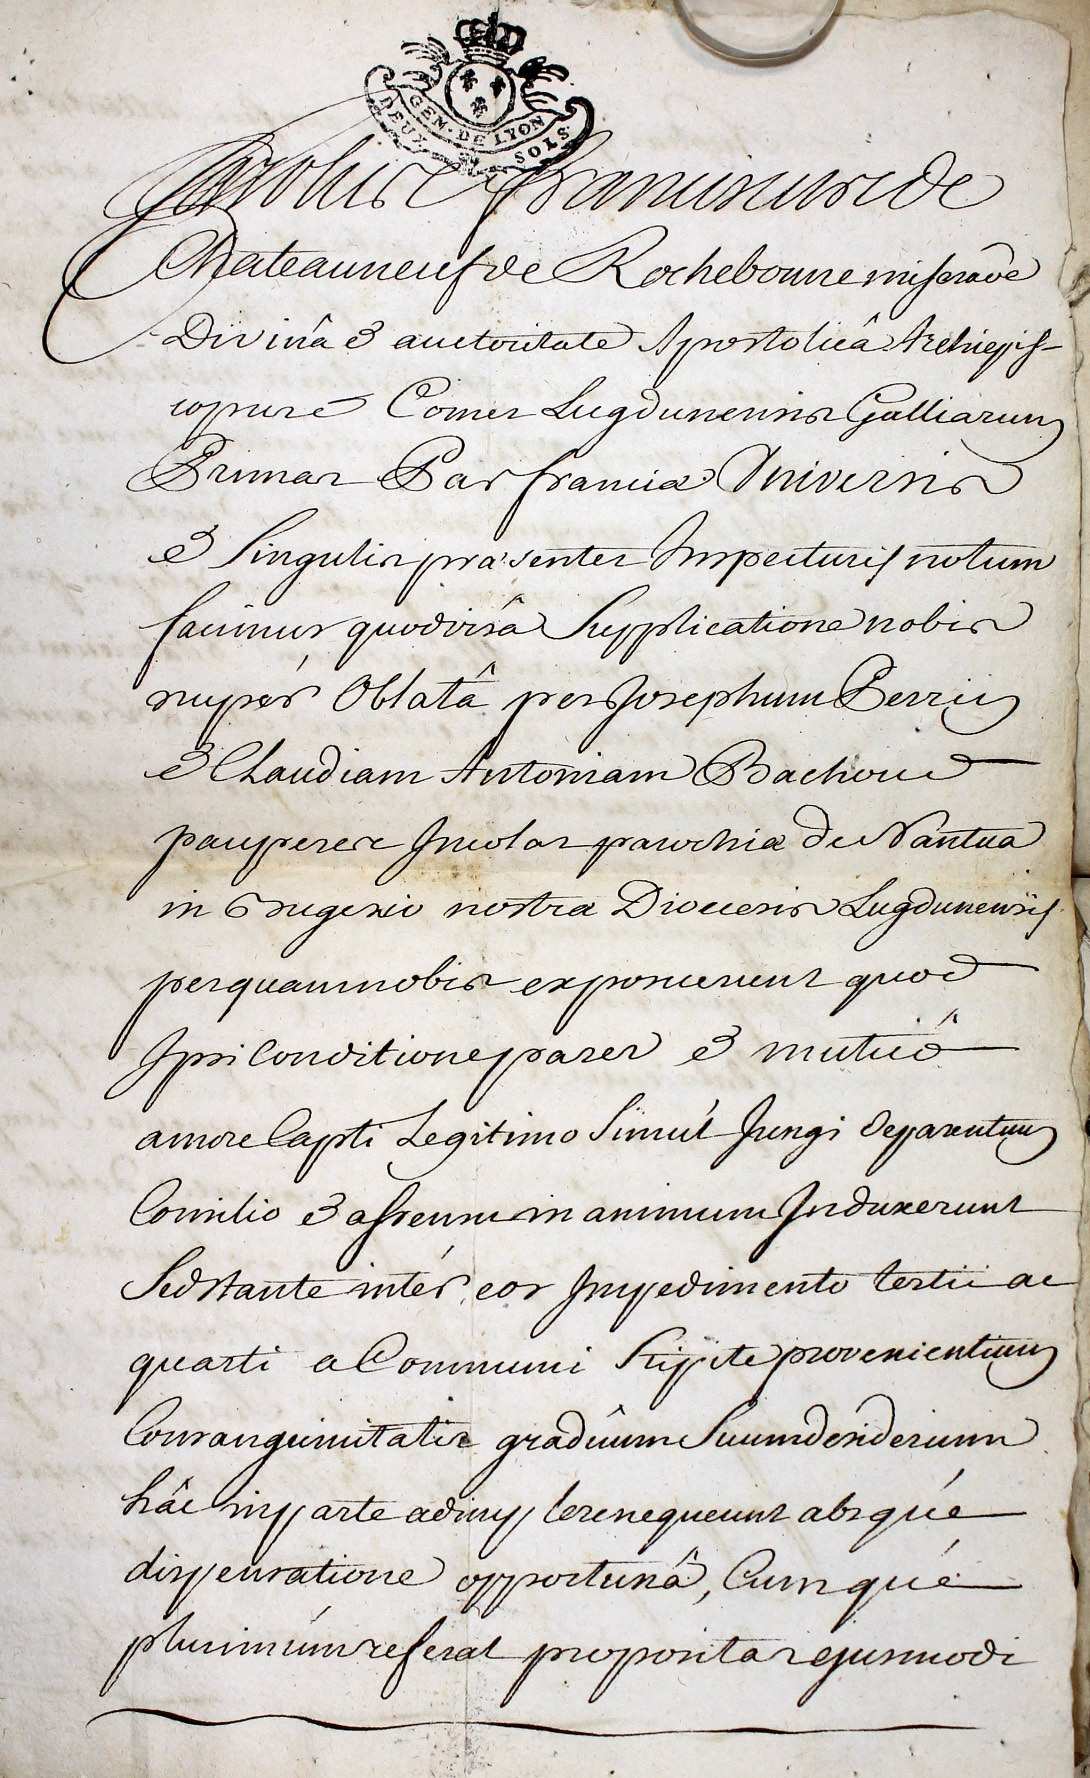 GEN. DE LYON
DEUX SOLS
Carolus Franciscus de
Chateauneuf de Rochebonne miseraõe
Divinâ & auctoritate Apostolicâ Archiepis-
copus & Comes Lugdunensis Galliarum
Primas Par franciæ Universis
& Singulis præsentes Inspecturis notum
facimus quod visâ Supplicatione nobis
nupér Oblatâ per Josephum Perrin
& Claudiam Antoniam Bachoud
pauperes Incolas parochiæ de Nantua
in Brugesio nostræ Diocesis Lugdunensis
per quam nobis exposuerunt quod
Ipsi Conditione pares & mutuô
amore Capti Legitimo Simúl Jungi de parentum
Consilio & assensu in animum Induxerunt
Sed stante intér eos Impedimento tertii ac
quarti a Communi Stipite provenientium
Consanguinitatis graduûm Suum desiderium
hâc in parte adimplere nequeunt absqué
dispensatione opportunâ, Cumqué
plurimúm referat propositas ejusmodi